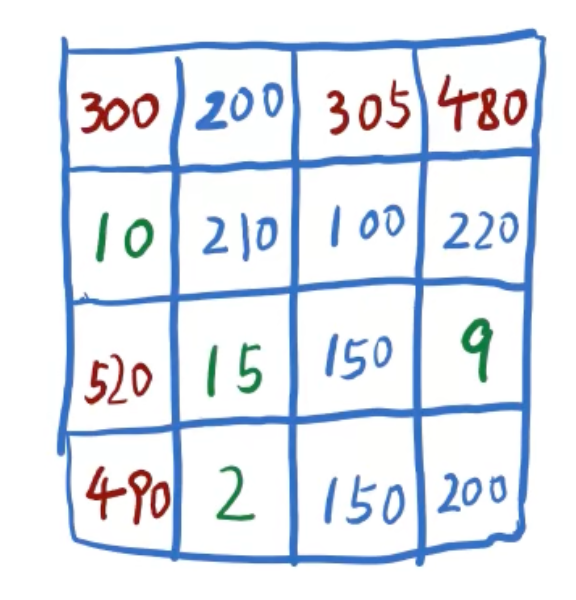 300 200 305 480
10 210 100 220
520 15 150 9
490 2 150 200